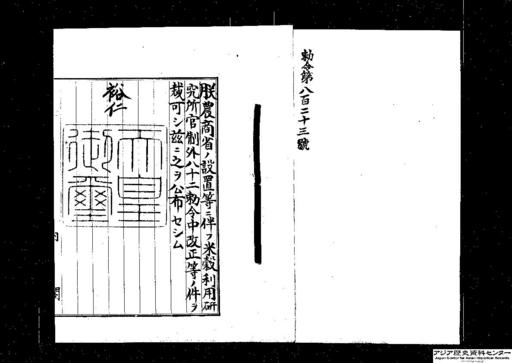 勅令第八百二十三號
朕農商省ノ設置等ニ伴フ米穀利用研
究所官制外八十二勅令中改正等ノ件ヲ
裁可シ茲ニ之ヲ公布セシム
裕仁
天皇
御璽
内
閣
アジア歴史資料センター
Japan Center for Asian Historical Records